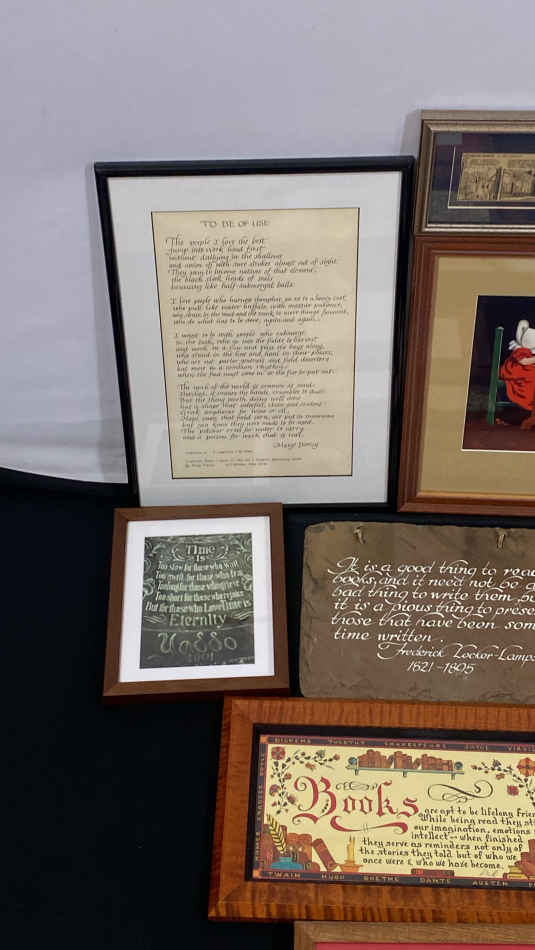 TO BE OF USE
The people I love the best
jump into work head first
without dallying in the shallows
and swim off with sure strokes almost out of sight.
They seem to become natives of that element,
the black sleek heads of seals
bouncing like half-submerged balls.
I love people who harness themselves, an ox to a heavy cart,
who pull like water buffalo, with massive patience,
who strain in the mud and the muck to move things forward,
who do what has to be done, again and again.
I want to be with people who submerge
in the task, who go into the fields to harvest
and work in a row and pass the bags along,
who stand in the line and haul in their places,
who are not parlor generals and field deserters
but move in a common rhythm
when the food must come in or the fire be put out.
The work of the world is common as mud.
Botched, it smears the hands, crumbles to dust.
But the thing worth doing well done
has a shape that satisfies, clean and evident.
Greek amphoras for wine or oil,
Hopi vases that held corn, are put in museums
but you know they were made to be used.
The pitcher cries for water to carry
and a person for work that is real.
Marge Piercy
Time
is
Too slow for those who wait
Too swift for those who fear
Too long for those who grieve
Too short for those who rejoice
But for those who Love Time is
Eternity
It is a good thing to read
books, and it need not be a
bad thing to write them, but
it is a pious thing to
those that have been
time written.
Frederick Locker-Lamps
1821-1895
DICKENS TOLSTOY SHAKESPEARE JOYCE VIRGIL
HOMER CHAUCER DOYLE
Books
are apt to be lifelong
While being read they
our imagination, emotions
intellect — when finished
they serve as reminders not only of
the stories they told, but of who we
once were & who we have become.
TWAIN HUGO GOETHE DANTE AUSTEN